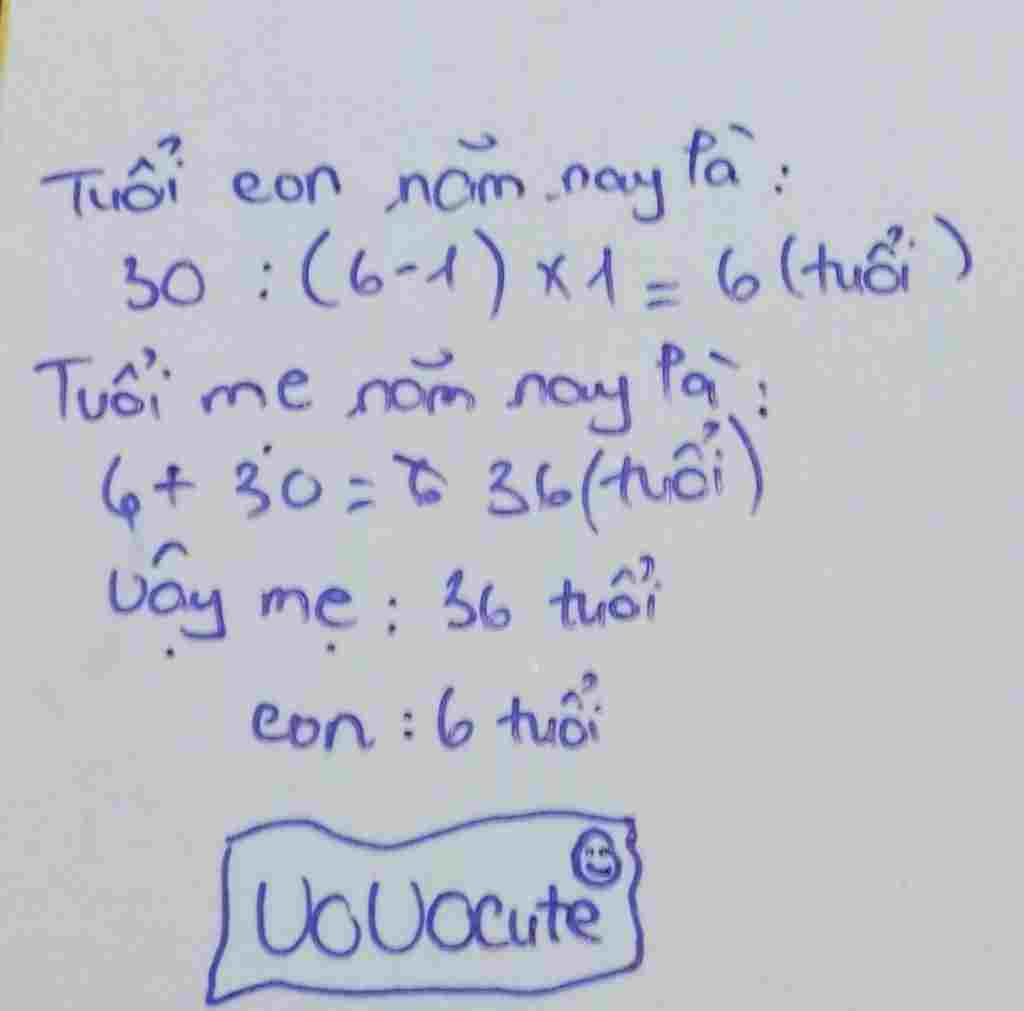 Tuổi con năm nay là:
30 : (6-1) x 1 = 6 (tuổi)
Tuổi me năm nay là:
6 + 30 = 36 (tuổi)
Vậy mẹ : 36 tuổi
con : 6 tuổi
UoUocute